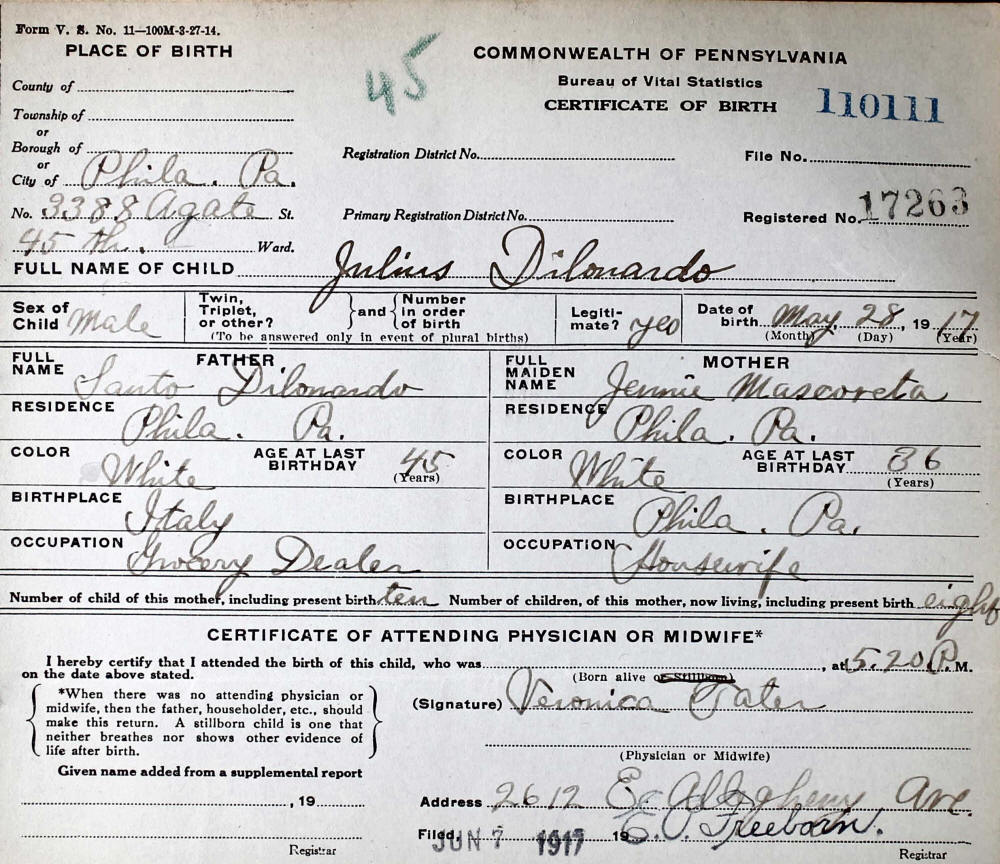 Form V. S. No. 11—100M-3-27-14.
PLACE OF BIRTH
County of
Township of
or
Borough of
or
City of Phila. Pa.
No. 3388 Agate St.
45 th. Ward.
45
COMMONWEALTH OF PENNSYLVANIA
Bureau of Vital Statistics
CERTIFICATE OF BIRTH
110111
Registration District No.
File No.
Primary Registration District No.
Registered No. 17263
FULL NAME OF CHILD Julius Dilonardo
Sex of Child Male
Twin, Triplet, or other? } and { Number in order of birth
(To be answered only in event of plural births)
Legiti-mate? yes
Date of birth May 28, 1917
(Month) (Day) (Year)
FATHER
FULL NAME Santo Dilonardo
RESIDENCE Phila. Pa.
COLOR White AGE AT LAST BIRTHDAY 45 (Years)
BIRTHPLACE Italy
OCCUPATION Grocery Dealer
MOTHER
FULL MAIDEN NAME Jennie Mascoreta
RESIDENCE Phila. Pa.
COLOR White AGE AT LAST BIRTHDAY 36 (Years)
BIRTHPLACE Phila. Pa.
OCCUPATION Housewife
Number of child of this mother, including present birth ten Number of children, of this mother, now living, including present birth eight
CERTIFICATE OF ATTENDING PHYSICIAN OR MIDWIFE*
I hereby certify that I attended the birth of this child, who was , at 5.20 P. M.
on the date above stated. (Born alive or Stillborn)
*When there was no attending physician or
midwife, then the father, householder, etc., should
make this return. A stillborn child is one that
neither breathes nor shows other evidence of
life after birth.
(Signature) Veronica Tater
(Physician or Midwife)
Given name added from a supplemental report
, 19
Registrar
Address 2612 E. Allegheny Ave.
Filed, JUN 7 1917 19 E. V. Freeborn.
Registrar